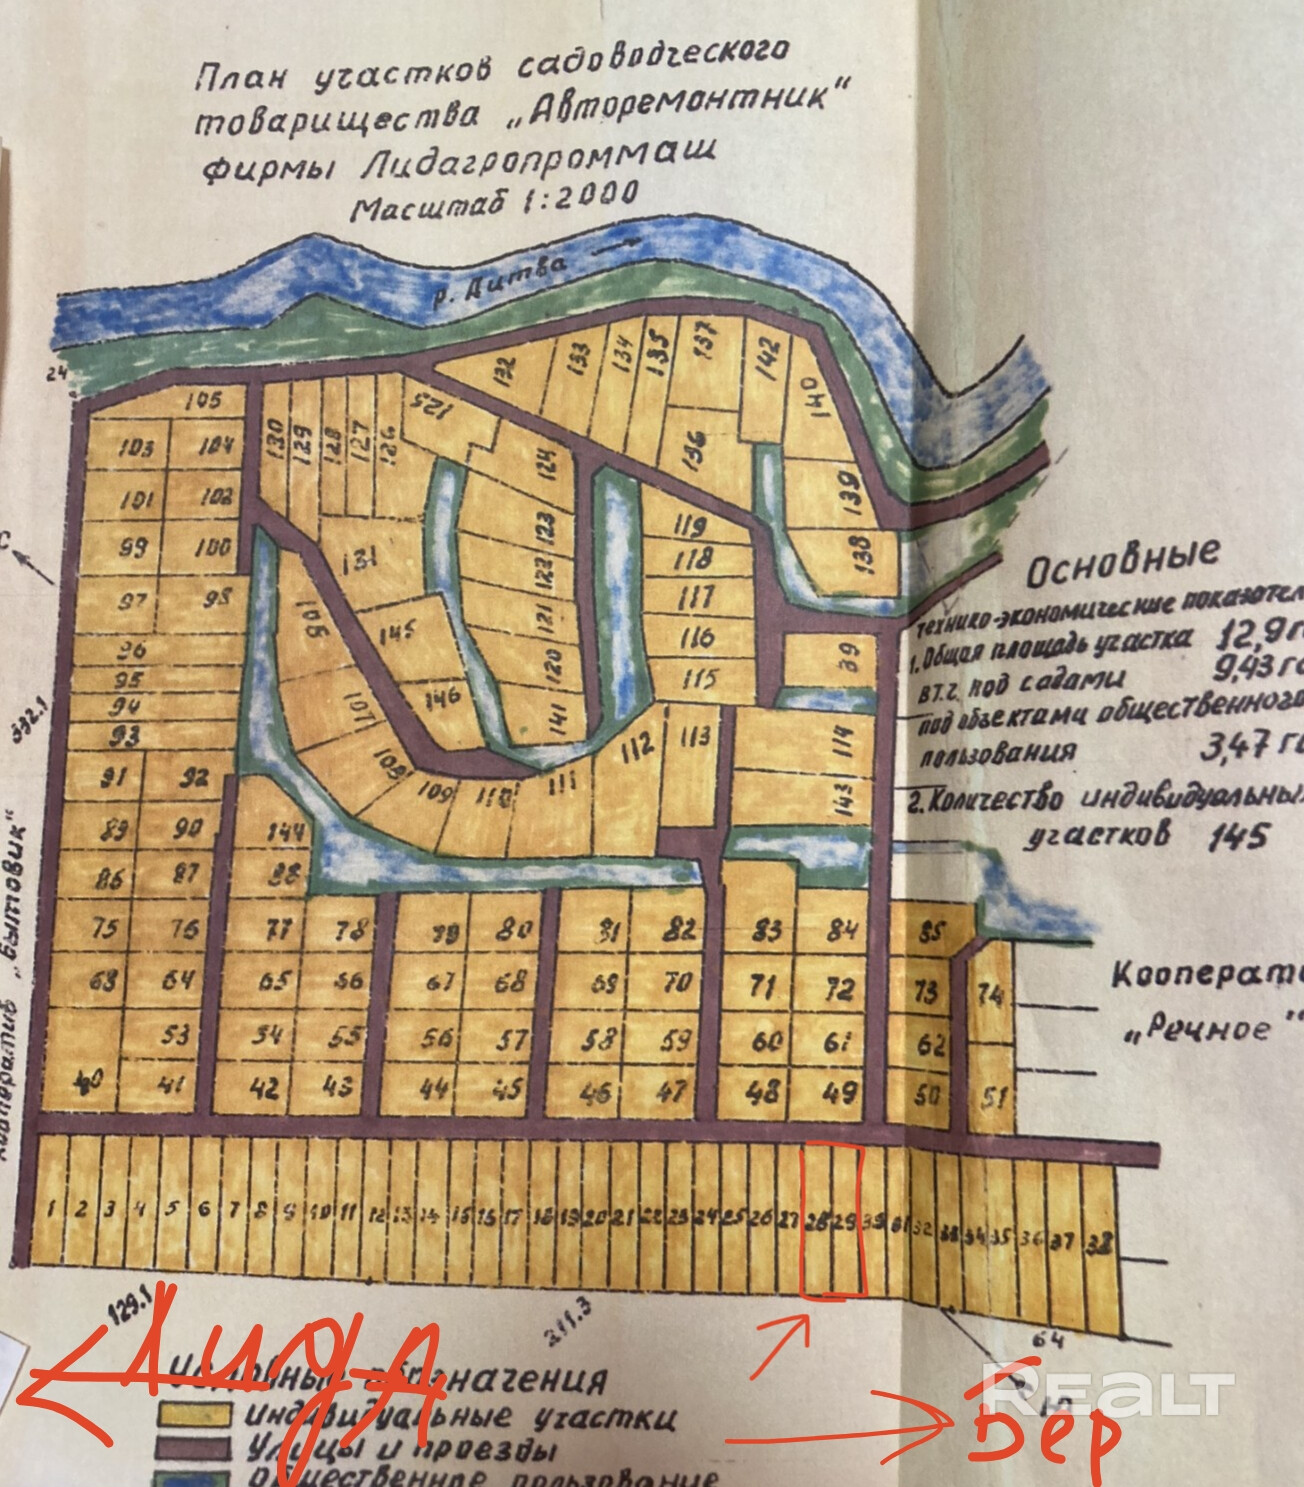 План участков садоводческого
товарищества „Авторемонтник“
фирмы Лидагропроммаш
Масштаб 1:2000
р. Дитва
24
132 133 134 135 137 142 140
105 130 129 128 127 126 125
103 104 124 136 139
101 102 123 119
99 100 131 122 118 138
97 98 106 145 121 117
96 116 39
95 120 115
94 107 146 141
93 108 112 113 114
91 92 109 110 111 143
89 90 144
86 87 88
75 76 77 78 80 81 82 83 84 85
63 64 65 66 67 68 69 70 71 72 73 74
53 54 55 56 57 58 59 60 61 62
40 41 42 43 44 45 46 47 48 49 50 51
1 2 3 4 5 6 7 8 9 10 11 12 13 14 15 16 17 18 19 20 21 22 23 24 25 26 27 28 29 30 31 32 33 34 35 36 37 38
С
332.1
Кооператив „Бытовик“
Основные
технико-экономические показател
1. Общая площадь участка 12,9 г
в т.ч. под садами 9,43 га
под объектами общественного
пользования 3,47 га
2. Количество индивидуальных
участков 145
Коопера­ти
„Речное“
129.1
211.3
64
Ю
Лида
Бер
REALT
Основные обозначения
индивидуальные участки
Улицы и проезды
Общественное пользование